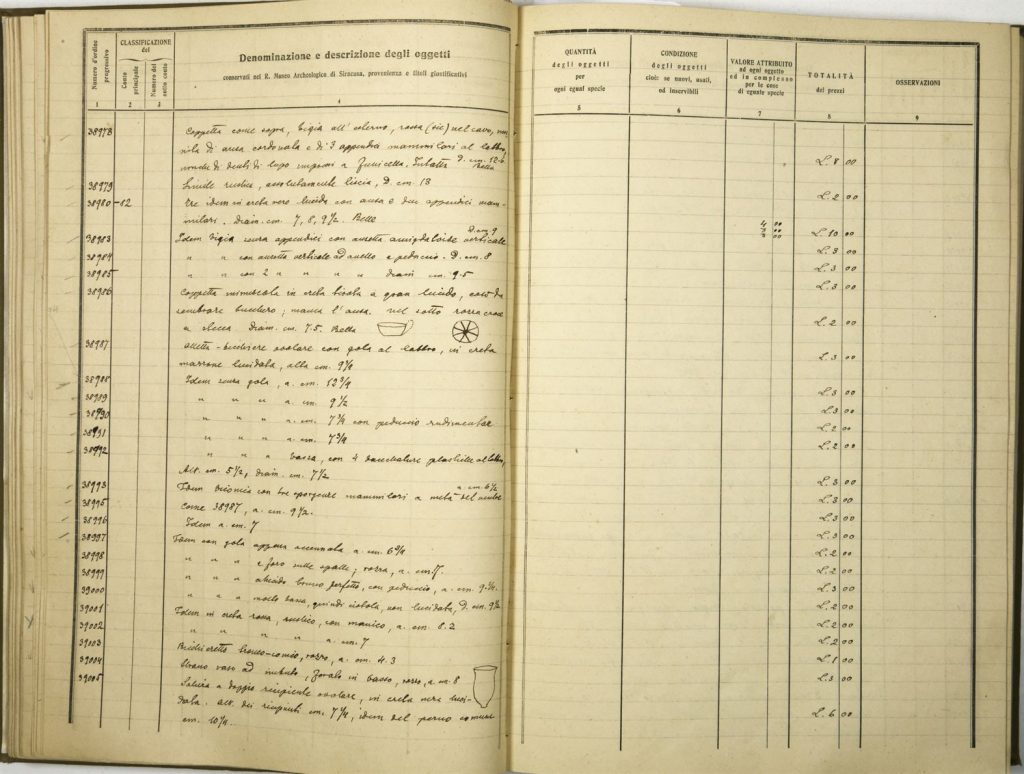 Numero d'ordine progressivo
CLASSIFICAZIONE del
Conto principale
Numero del sotto conto
Denominazione e descrizione degli oggetti
conservati nel R. Museo Archeologico di Siracusa, provenienza e titoli giustificativi
QUANTITÀ degli oggetti per ogni eguale specie
CONDIZIONE degli oggetti cioè: se nuovi, usati, od inservibili
VALORE ATTRIBUITO ad ogni oggetto ed in complesso per le cose di eguale specie
TOTALITÀ dei prezzi
OSSERVAZIONI
1 2 3 4 5 6 7 8 9
38978 Coppetta come sopra, bigia all'esterno, rossa (sic) nel cavo,
di ansa cordonata e di 3 appendici mammillari al labbro,
di denti di lupo impressi a funicella. Intatta D. cm. 12 Bella L. 8 00
38979 Simile rustica, assolutamente liscia, D. cm. 13 L. 2 00
38980-82 Tre idem in creta nera lucida con ansa e due appendici mam-
millari. Diam. cm. 7, 8, 9 1/2. Belle L. 10 00
38983 Idem bigia senza appendici con ansetta amigdaloide verticale D. cm. 9 L. 3 00
38984 " " con ansetta verticale ad anello e peduccio. D. cm. 8 L. 3 00
38985 " " con 2 " " " " diam. cm. 9.5 L. 3 00
38986 Coppetta minuscola in creta a gran lucido, così da
sembrare bucchero; manca l'ansa. nel sotto rozza croce
a stecca. diam. cm. 7.5. Bella L. 2 00
38987 Olletta-bicchiere ovolare con gola al labbro, in creta
marrone lucidata, alta cm. 9 3/4 L. 3 00
38988 Idem senza gola, a. cm. 13 3/4 L. 3 00
38989 " " " a. cm. 9 1/2 L. 3 00
38990 " " " a. cm. 7 3/4 con peduccio rudimentale L. 2 00
38991 " " " a. cm. 7 3/4 L. 2 00
38992 " " " bassa, con 4 plastiche al labbro,
Alt. cm. 5 1/2, diam. cm. 7 1/2 L. 3 00
38993 Idem con tre sporgenze mammillari a metà del ventre a. cm. 6 1/2 L. 3 00
38995 Come 38987, a. cm. 9 1/2. L. 3 00
38996 Idem a. cm. 7 L. 3 00
38997 Idem con gola appena accennata a. cm. 6 3/4 L. 2 00
38998 " " e foro sulle spalle; rozza, a. cm. 7. L. 2 00
38999 " " " tronco perfetto, con peduccio, a. cm. 9 L. 3 00
39000 " " " molto bassa, quindi ciotola, non lucidata, D. cm. 9 1/2 L. 2 00
39001 Idem in creta rossa, rustico, con manico, a. cm. 8.2 L. 2 00
39002 " " " " " a. cm. 7 L. 2 00
39003 Bicchieretto tronco-conico, rozzo, a. cm. 4.3 L. 1 00
39004 Strano vaso ad imbuto, forato in basso, rozzo, a. cm. 8 L. 3 00
39005 Saliera a doppio recipiente ovolare, in creta nera luci-
data. Alt. dei recipienti cm. 7 1/4, idem del perno comune
cm. 10 1/4. L. 6 00